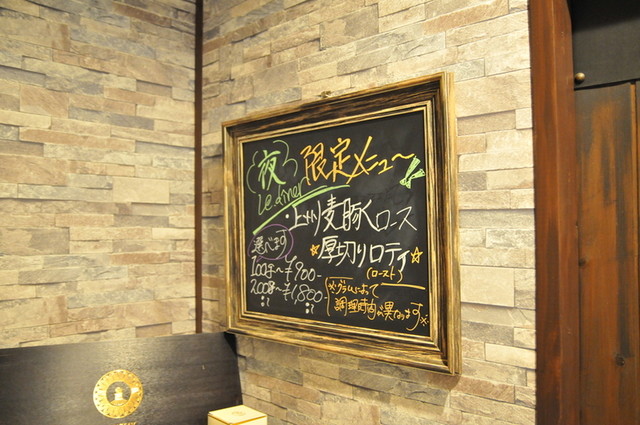 夜 限定メニュー
Le dîner
・上州麦豚ロース
☆厚切りロティ☆
(ロースト)
選べます
100g〜¥900-
200g〜¥1,800-
※グラムによって
調理時間が異なります※